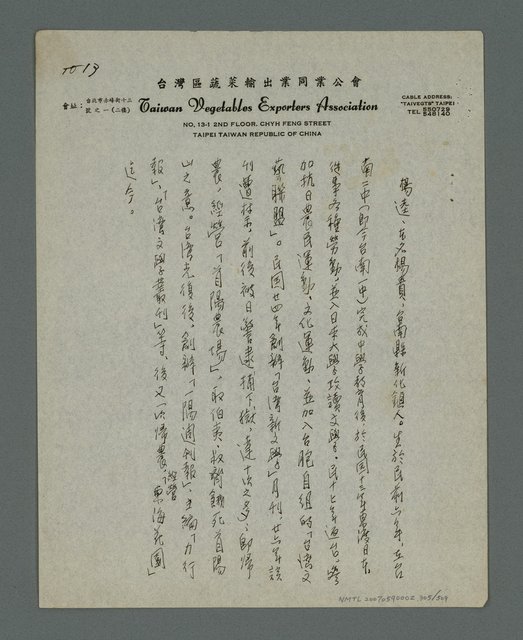 to 13
台灣區蔬菜輸出業同業公會
會址：台北市赤峰街十三號之一（二樓）
Taiwan Vegetables Exporters Association
CABLE ADDRESS:
"TAIVEGTS" TAIPEI
TEL 550729
548140
NO. 13-1 2ND FLOOR, CHYH FENG STREET
TAIPEI TAIWAN REPUBLIC OF CHINA
楊逵、本名楊貴，台南縣新化鎮人。生於民前六年，在台
南二中（即今台南一中）完成中學教育後，於民國十三年東渡日本
從事各種勞動，並入日本大學攻讀文學。民十七年返台，參
加抗日農民運動、文化運動，並加入台胞自組的「台灣文
藝聯盟」。民國廿四年創辦「台灣新文學」月刊，廿六年該
刊遭禁，前後被日警逮捕下獄，達十次之多，即歸
農，經營「首陽農場」，取伯夷、叔齊餓死首陽
山之意。台灣光復後，創辦「一陽週刊報」，主編「力行
報」、「台灣文學叢刊」等，後又一次歸農，經營「東海花園」
迄今。
NMTL 20070590002 305/509